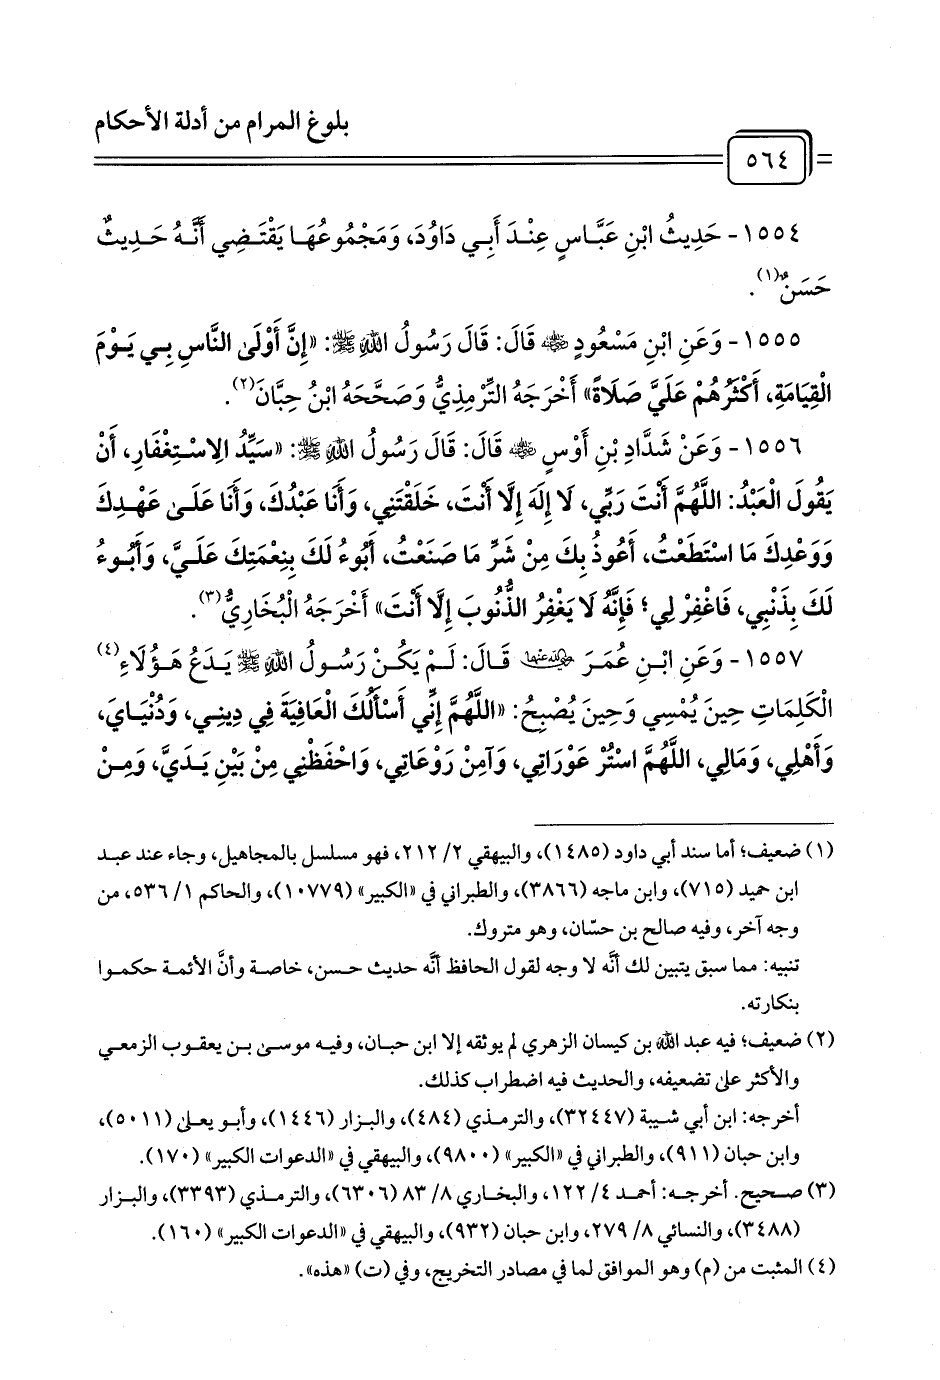 بلوغ المرام من أدلة الأحكام
٥٦٤
١٥٥٤- حَدِيثُ ابْنِ عَبَّاسٍ عِنْدَ أَبِي دَاوُدَ، وَمَجْمُوعُهَا يَقْتَضِي أَنَّهُ حَدِيثٌ
حَسَنٌ(١).
١٥٥٥- وَعَنِ ابْنِ مَسْعُودٍ ﵁ قَالَ: قَالَ رَسُولُ اللهِ ﷺ: «إِنَّ أَوْلَى النَّاسِ بِي يَوْمَ
الْقِيَامَةِ، أَكْثَرُهُمْ عَلَيَّ صَلَاةً» أَخْرَجَهُ التِّرْمِذِيُّ وَصَحَّحَهُ ابْنُ حِبَّانَ(٢).
١٥٥٦- وَعَنْ شَدَّادِ بْنِ أَوْسٍ ﵁ قَالَ: قَالَ رَسُولُ اللهِ ﷺ: «سَيِّدُ الِاسْتِغْفَارِ، أَنْ
يَقُولَ الْعَبْدُ: اللَّهُمَّ أَنْتَ رَبِّي، لَا إِلَهَ إِلَّا أَنْتَ، خَلَقْتَنِي، وَأَنَا عَبْدُكَ، وَأَنَا عَلَى عَهْدِكَ
وَوَعْدِكَ مَا اسْتَطَعْتُ، أَعُوذُ بِكَ مِنْ شَرِّ مَا صَنَعْتُ، أَبُوءُ لَكَ بِنِعْمَتِكَ عَلَيَّ، وَأَبُوءُ
لَكَ بِذَنْبِي، فَاغْفِرْ لِي؛ فَإِنَّهُ لَا يَغْفِرُ الذُّنُوبَ إِلَّا أَنْتَ» أَخْرَجَهُ الْبُخَارِيُّ(٣).
١٥٥٧- وَعَنِ ابْنِ عُمَرَ ﵄ قَالَ: لَمْ يَكُنْ رَسُولُ اللهِ ﷺ يَدَعُ هَؤُلَاءِ(٤)
الْكَلِمَاتِ حِينَ يُمْسِي وَحِينَ يُصْبِحُ: «اللَّهُمَّ إِنِّي أَسْأَلُكَ الْعَافِيَةَ فِي دِينِي، وَدُنْيَايَ،
وَأَهْلِي، وَمَالِي، اللَّهُمَّ اسْتُرْ عَوْرَاتِي، وَآمِنْ رَوْعَاتِي، وَاحْفَظْنِي مِنْ بَيْنِ يَدَيَّ، وَمِنْ
(١) ضعيف؛ أما سند أبي داود (١٤٨٥)، والبيهقي ٢/ ٢١٢، فهو مسلسل بالمجاهيل، وجاء عند عبد
ابن حميد (٧١٥)، وابن ماجه (٣٨٦٦)، والطبراني في «الكبير» (١٠٧٧٩)، والحاكم ١/ ٥٣٦، من
وجه آخر، وفيه صالح بن حسّان، وهو متروك.
تنبيه: مما سبق يتبين لك أنَّه لا وجه لقول الحافظ أنَّه حديث حسن، خاصة وأنَّ الأئمة حكموا
بنكارته.
(٢) ضعيف؛ فيه عبد الله بن كيسان الزهري لم يوثقه إلا ابن حبان، وفيه موسى بن يعقوب الزمعي
والأكثر على تضعيفه، والحديث فيه اضطراب كذلك.
أخرجه: ابن أبي شيبة (٣٢٤٤٧)، والترمذي (٤٨٤)، والبزار (١٤٤٦)، وأبو يعلى (٥٠١١)،
وابن حبان (٩١١)، والطبراني في «الكبير» (٩٨٠٠)، والبيهقي في «الدعوات الكبير» (١٧٠).
(٣) صحيح. أخرجه: أحمد ٤/ ١٢٢، والبخاري ٨/ ٨٣ (٦٣٠٦)، والترمذي (٣٣٩٣)، والبزار
(٣٤٨٨)، والنسائي ٨/ ٢٧٩، وابن حبان (٩٣٢)، والبيهقي في «الدعوات الكبير» (١٦٠).
(٤) المثبت من (م) وهو الموافق لما في مصادر التخريج، وفي (ت) «هذه».